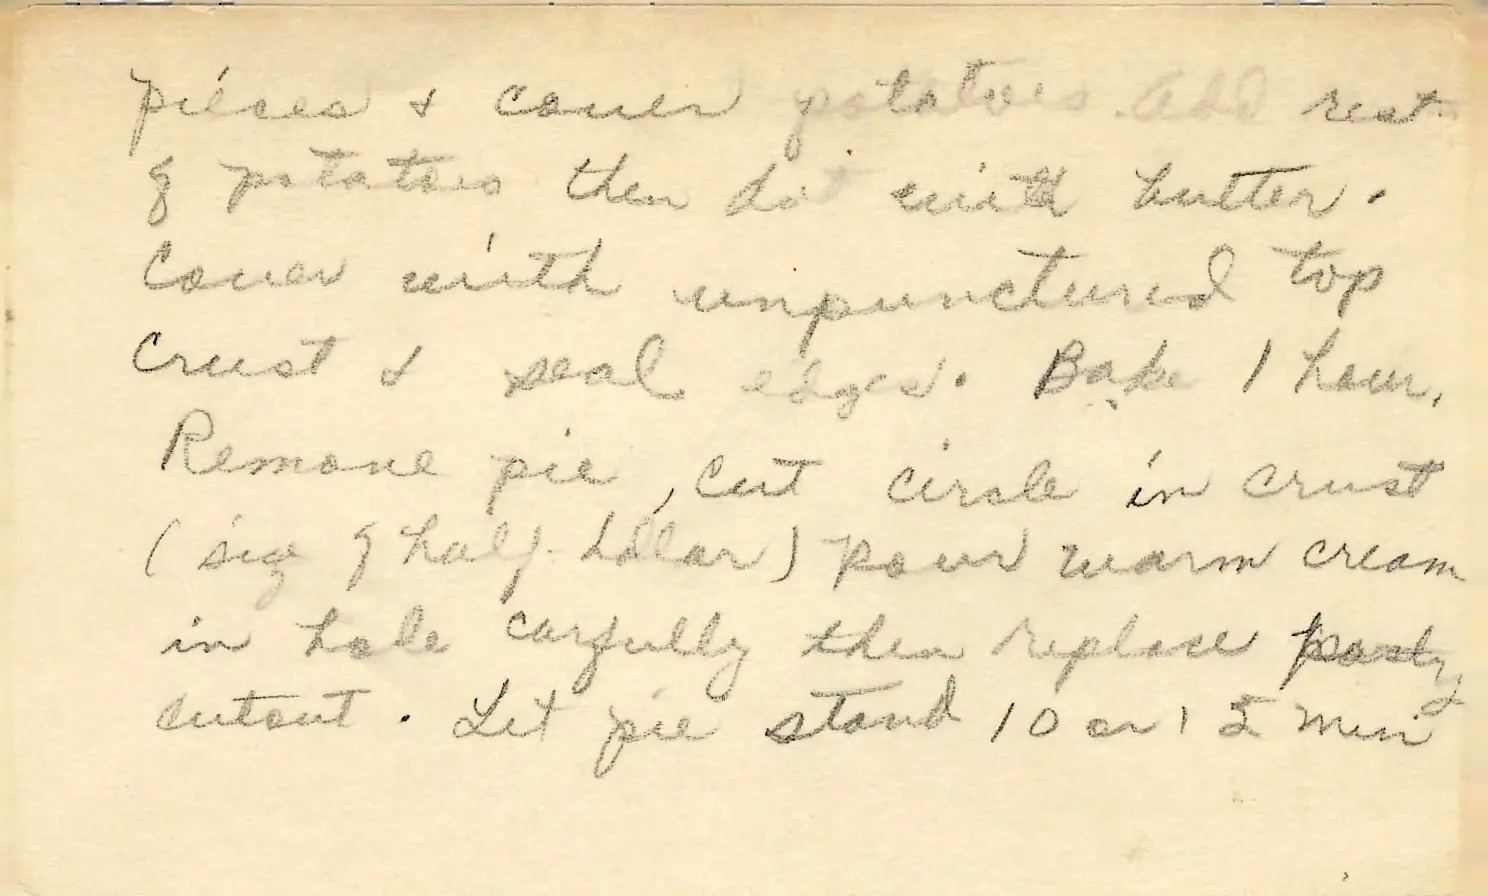 pieces & cover potatoes. Add rest
of potatoes then dot with butter.
Cover with unpunctured top
crust & seal edges. Bake 1 hour.
Remove pie, cut circle in crust
(size of half-dollar) pour warm cream
in hole carfully then replace pastry
cutout. Let pie stand 10 or 15 min